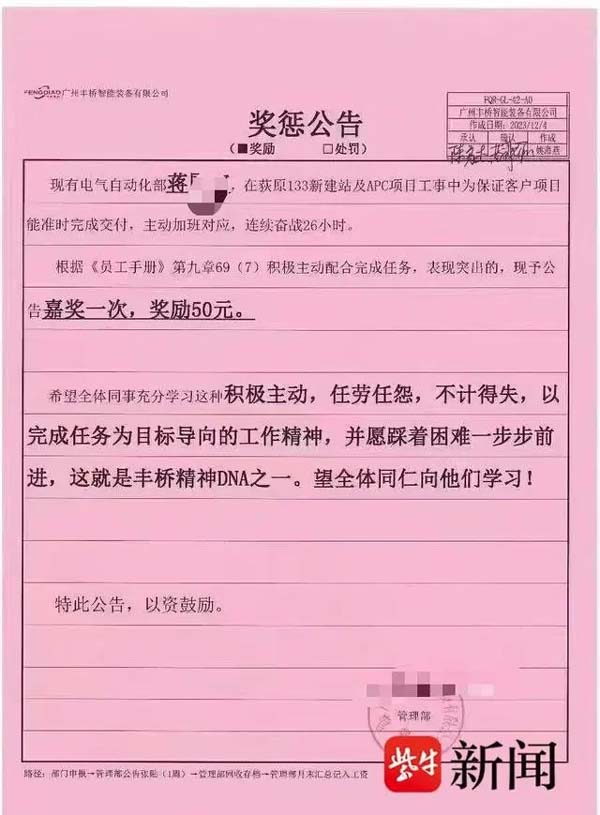 FENGQIAO 广州丰桥智能装备有限公司
FQR-GL-42-A0
广州丰桥智能装备有限公司
作成日期：2023/12/4
承认 确认 作成
奖惩公告
（■奖励 □处罚）
现有电气自动化部蒋，在荻原133新建站及APC项目工事中为保证客户项目
能准时完成交付，主动加班对应，连续奋战26小时。
根据《员工手册》第九章69（7）积极主动配合完成任务，表现突出的，现予公
告嘉奖一次，奖励50元。
希望全体同事充分学习这种积极主动，任劳任怨，不计得失，以
完成任务为目标导向的工作精神，并愿踩着困难一步步前
进，这就是丰桥精神DNA之一。望全体同仁向他们学习！
特此公告，以资鼓励。
管理部
路径：部门申报→管理部公告张贴（1周）→管理部回收存档→管理部月末汇总记入工资
紫牛新闻